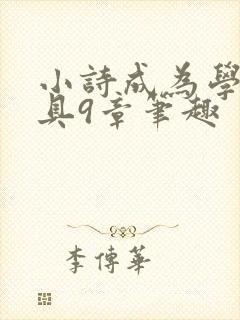 小詩成為學
具9章筆趣
李傳華